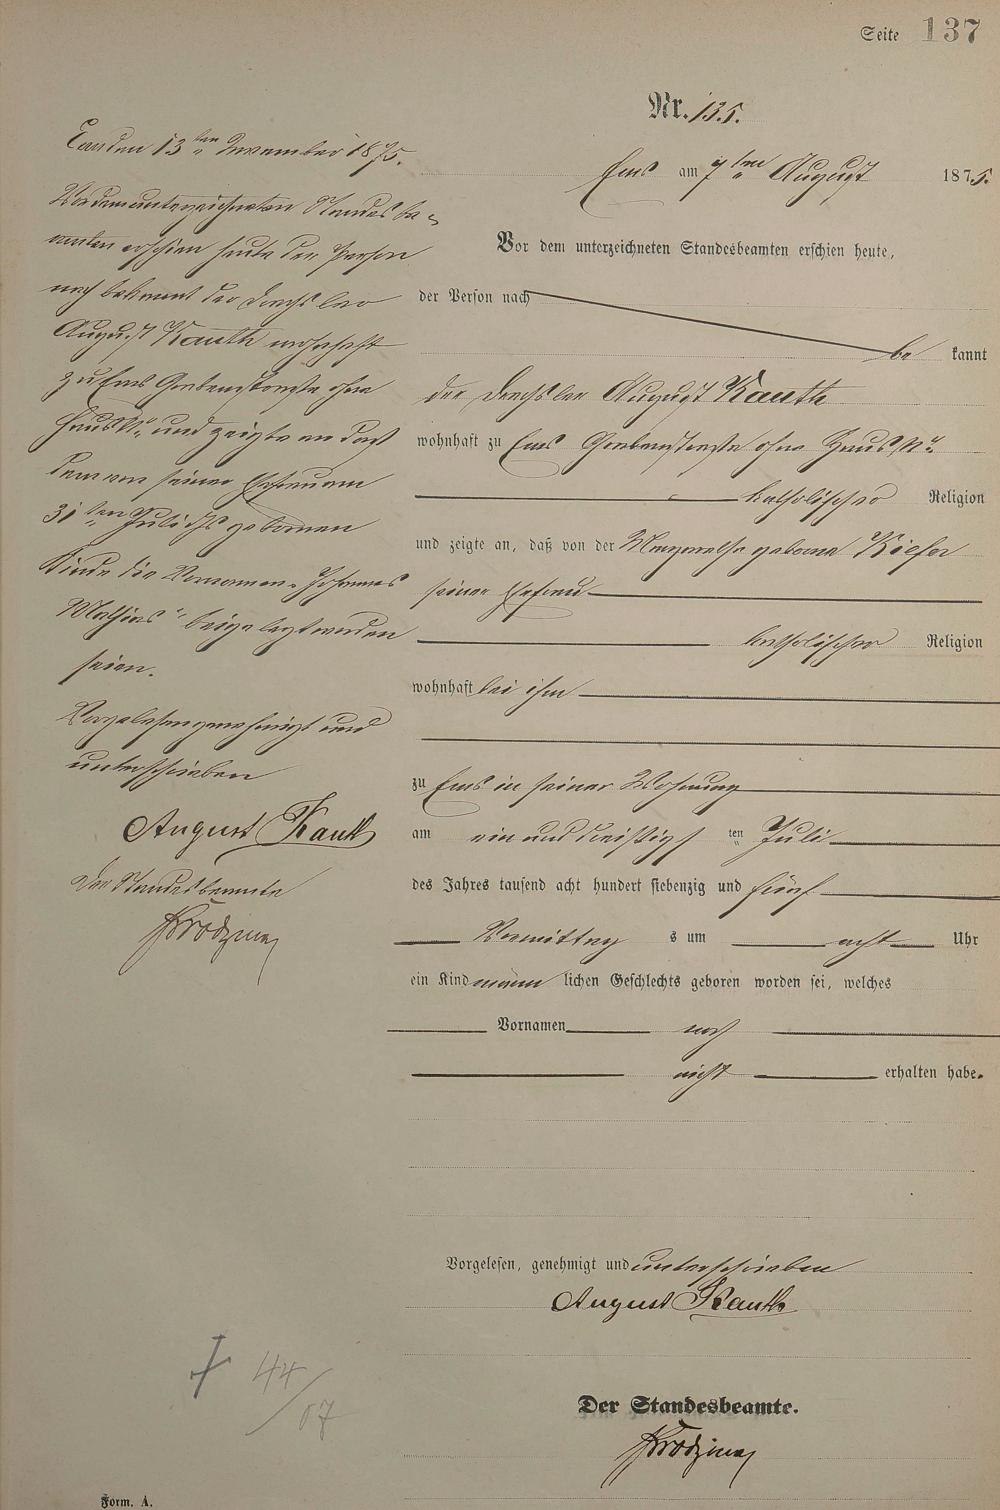 Seite 137
Nr. 135.
Ems am 7ten August 1875.
Vor dem unterzeichneten Standesbeamten erschien heute,
der Person nach
be kannt
der Drechsler August Kauth
wohnhaft zu Ems Grabenstraße ohne Haus N°
katholischer Religion
und zeigte an, daß von der Margarethe geborne Kiefer
seiner Ehefrau
katholischer Religion
wohnhaft bei ihm
zu Ems in seiner Wohnung
am ein und dreißigsten Juli
des Jahres tausend acht hundert siebenzig und fünf
Vormittag s um acht Uhr
ein Kind männlichen Geschlechts geboren worden sei, welches
Vornamen noch
nicht erhalten habe.
Vorgelesen, genehmigt und unterschrieben
August Kauth
Der Standesbeamte.
Ems den 13ten November 1875.
Vor dem unterzeichneten Standesbe-
amten erschien heute der Person
nach bekannt der Drechsler
August Kauth wohnhaft
zu Ems Grabenstraße ohne
Haus N° und zeigte an daß
dem von seiner Ehefrau am
31ten Juli gebornen
Kinde die Vornamen "Johannes
Mathias" beigelegt worden
seien.
Vorgelesen genehmigt und
unterschrieben
August Kauth
Der Standesbeamte
44/07
Form. A.